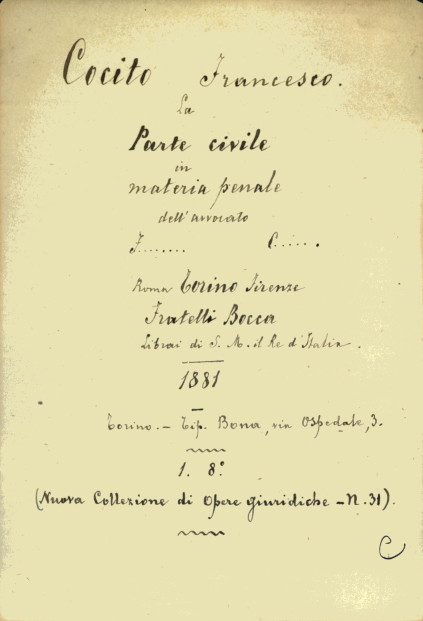 Cocito Francesco.
La
Parte civile
in
materia penale
dell'avvocato
F....... C......
Roma Torino Firenze
Fratelli Bocca
Librai di S. M. il Re d'Italia.
1881
Torino. - Tip. Bona, via Ospedale, 3.
1. 8°
(Nuova Collezione di Opere giuridiche - N. 31).
C